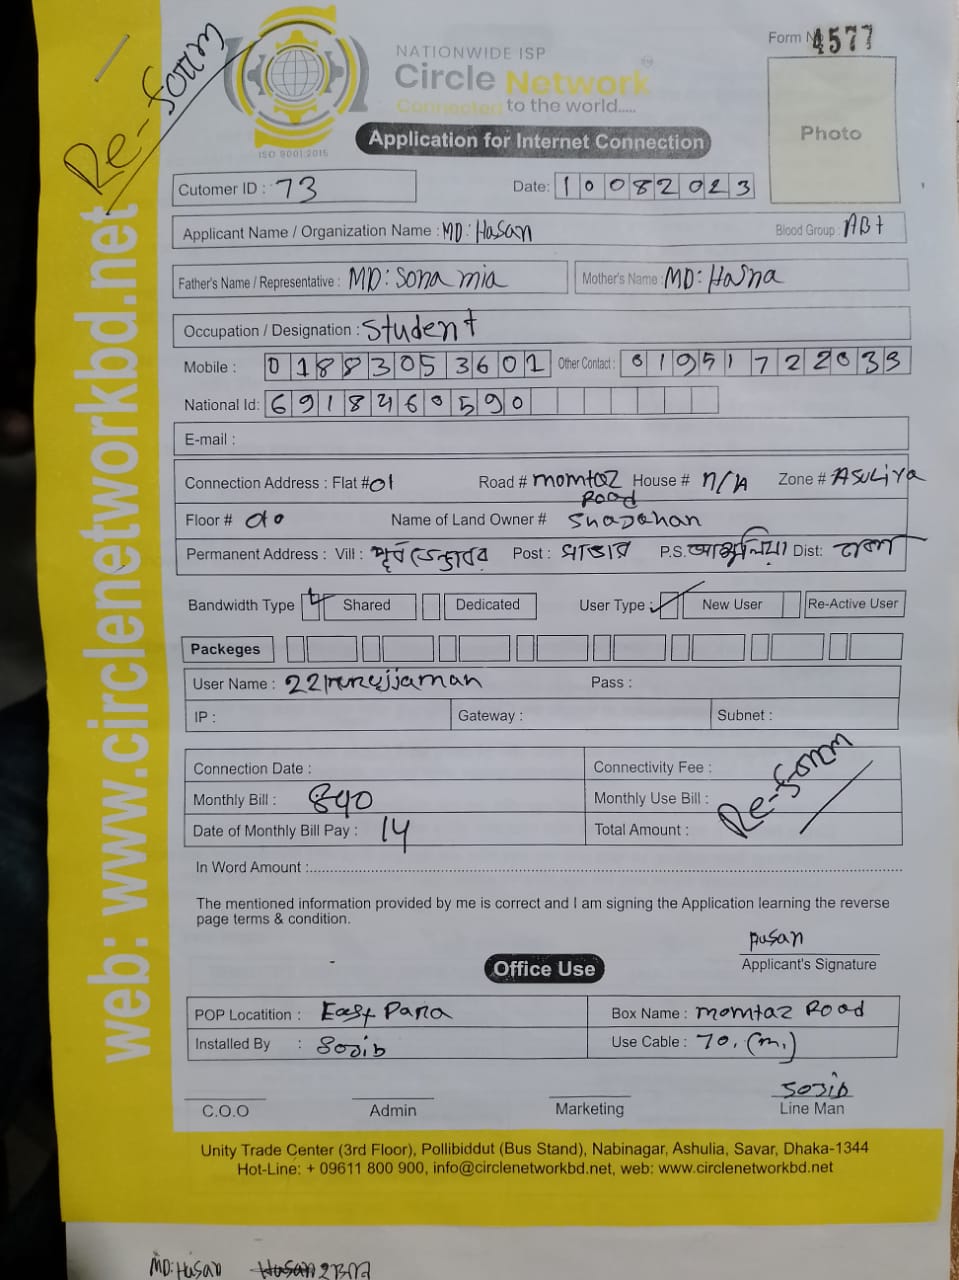 Re-form
NATIONWIDE ISP
Circle Network
Connected to the world.....
ISO 9001:2015
Form No 4577
Photo
Application for Internet Connection
Cutomer ID : 73
Date: 10082023
Applicant Name / Organization Name : MD: Hasan Blood Group : AB+
Father's Name / Representative : MD: Sona mia Mother's Name : MD: Hasna
Occupation / Designation : Student
Mobile : 01883053601 Other Contact : 01951722033
National Id: 6918460590
E-mail :
Connection Address : Flat #01 Road # momtaz Road House # n/A Zone # ASULiYa
Floor # Name of Land Owner # Shajahan
Permanent Address : Vill : পূর্ব Post : সাভার P.S. আশুলিয়া Dist: ঢাকা
Bandwidth Type Shared Dedicated User Type : New User Re-Active User
Packeges
User Name : Pass :
IP : Gateway : Subnet :
Connection Date : Connectivity Fee :
Monthly Bill : 840 Monthly Use Bill :
Date of Monthly Bill Pay : 14 Total Amount :
Re-form
In Word Amount :
The mentioned information provided by me is correct and I am signing the Application learning the reverse
page terms & condition.
Hasan
Applicant's Signature
Office Use
POP Locatition : East Para Box Name : momtaz Road
Installed By : Sojib Use Cable : 70. (m.)
Sojib
C.O.O Admin Marketing Line Man
Unity Trade Center (3rd Floor), Pollibiddut (Bus Stand), Nabinagar, Ashulia, Savar, Dhaka-1344
Hot-Line: + 09611 800 900, info@circlenetworkbd.net, web: www.circlenetworkbd.net
web: www.circlenetworkbd.net
MD: Hasan